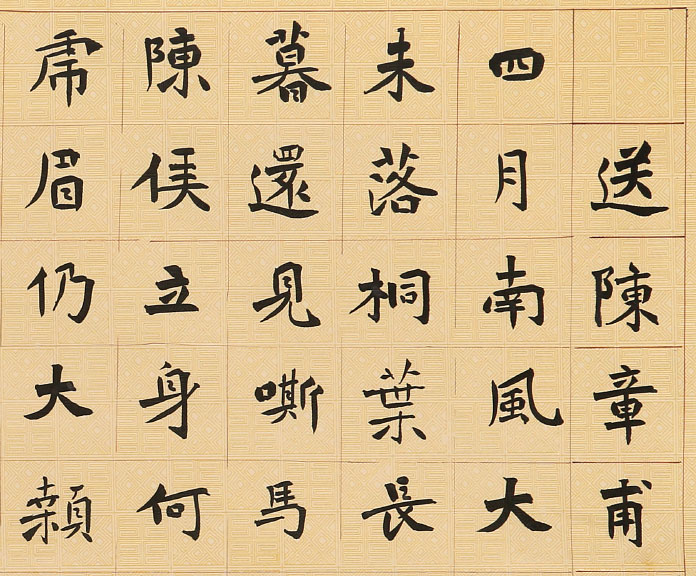 送陳章甫
四月南風大
未落桐葉長
暮還見嘶馬
陳侯立身何
虎眉仍大顙